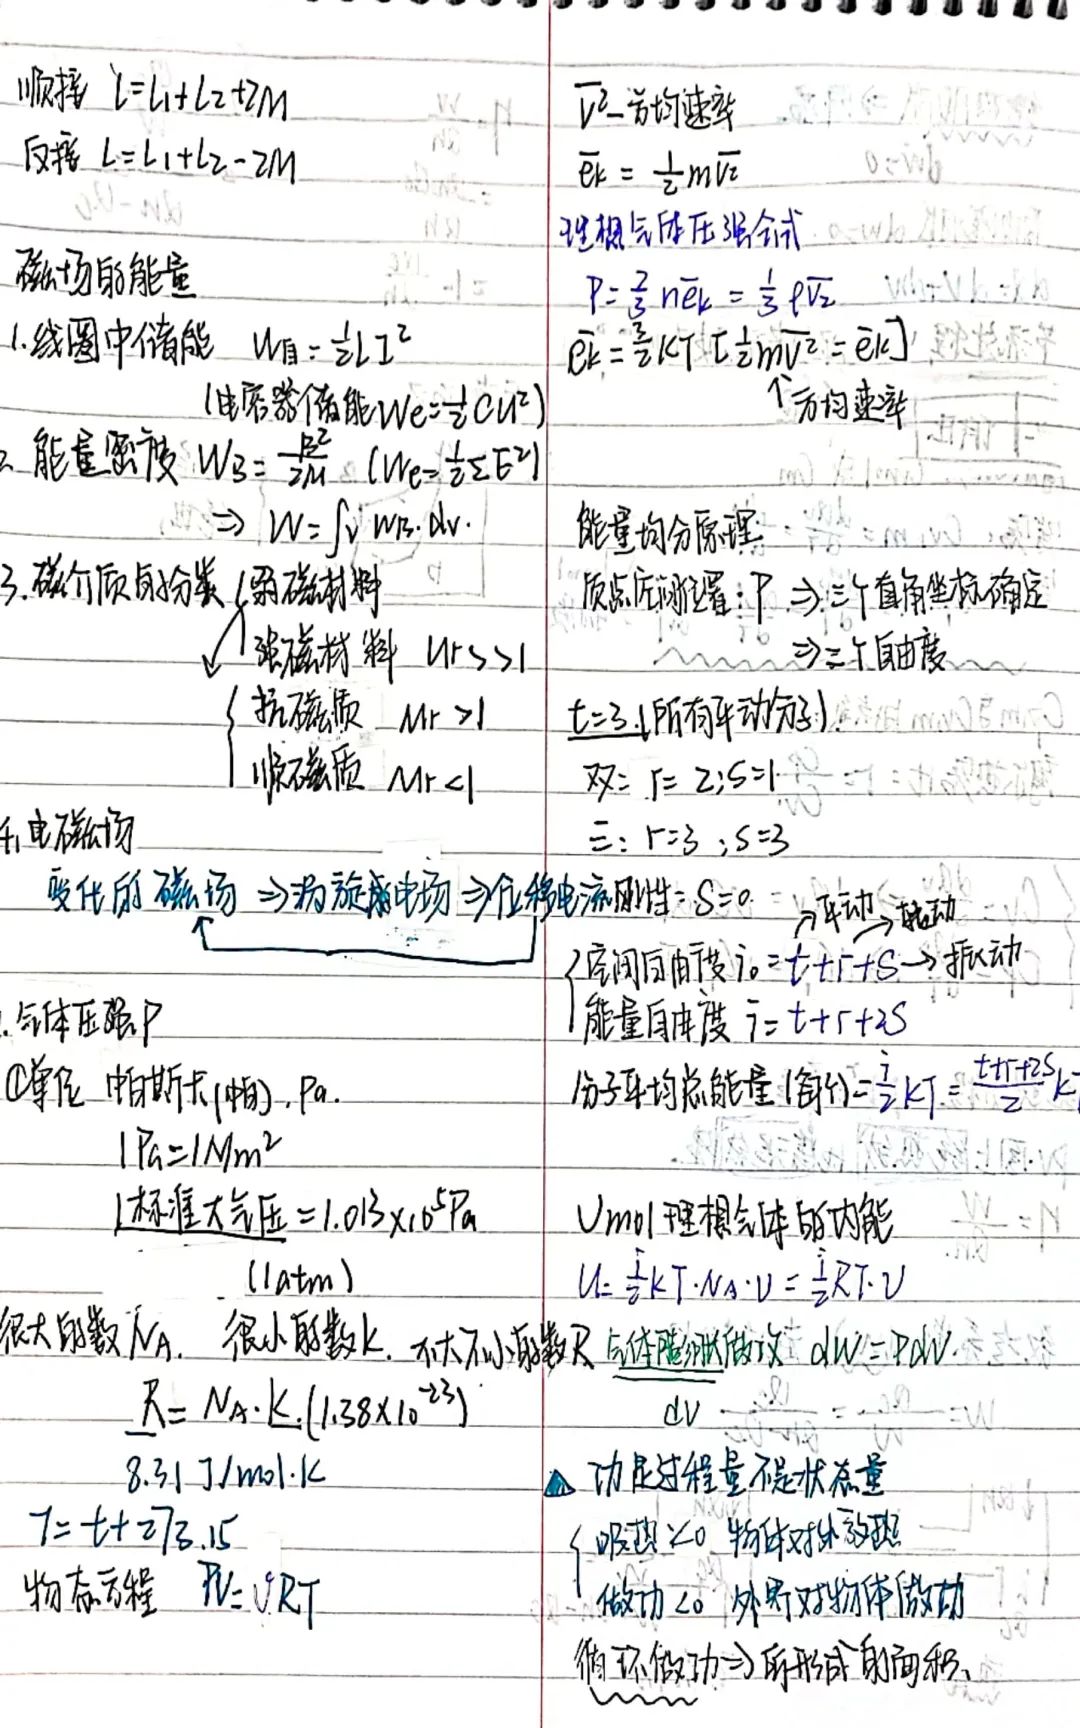 顺接 L=L₁+L₂+2M
反接 L=L₁+L₂-2M
磁场的能量
1.线圈中储能 W自=½LI²
(电容器储能We=½CU²)
2. 能量密度 WB=B²/2M (We=½ΣE²)
⇒ W=∫v WB·dv.
3.磁介质的分类{弱磁材料
强磁材料 Ur>>1
{抗磁质 Mr>1
顺磁质 Mr<1
电磁场
变化的磁场⇒涡旋感电场⇒位移电流
气体压强P
①单位 帕斯卡(帕).Pa.
1Pa=1N/m²
1标准大气压=1.013×10⁵Pa
(1atm)
很大的数NA. 很小的数K. 不大不小的数R
R=NA·K.(1.38×10⁻²³)
8.31J/mol·K
T=t+273.15
物态方程 PV=νRT
V̅²—方均速率
e̅k=½mV̅²
理想气体压强公式
P=⅔ne̅k=⅓ρV̅²
e̅k=3/2KT[½mV̅²=e̅k]
↑方均速率
能量均分原理:
质点空间位置:P ⇒三个直角坐标确定
⇒三个自由度
t=3.(所有平动分子).
双: r=2;S=1
三: r=3;S=3
刚性:S=0
↗平动 ↗转动
{空间自由度i₀=t+r+S→振动
能量自由度i=t+r+2S
分子平均总能量(每个)=i/2KT=(t+r+2S)/2 K
νmol理想气体的内能
U=i/2KT·NA·ν=i/2RT·ν
气体膨胀做功 dW=PdV.
dv
▲ 功是过程量不是状态量
{吸热<0 物体对外放热
做功<0 外界对物体做功
循环做功⇒所形成的面积.